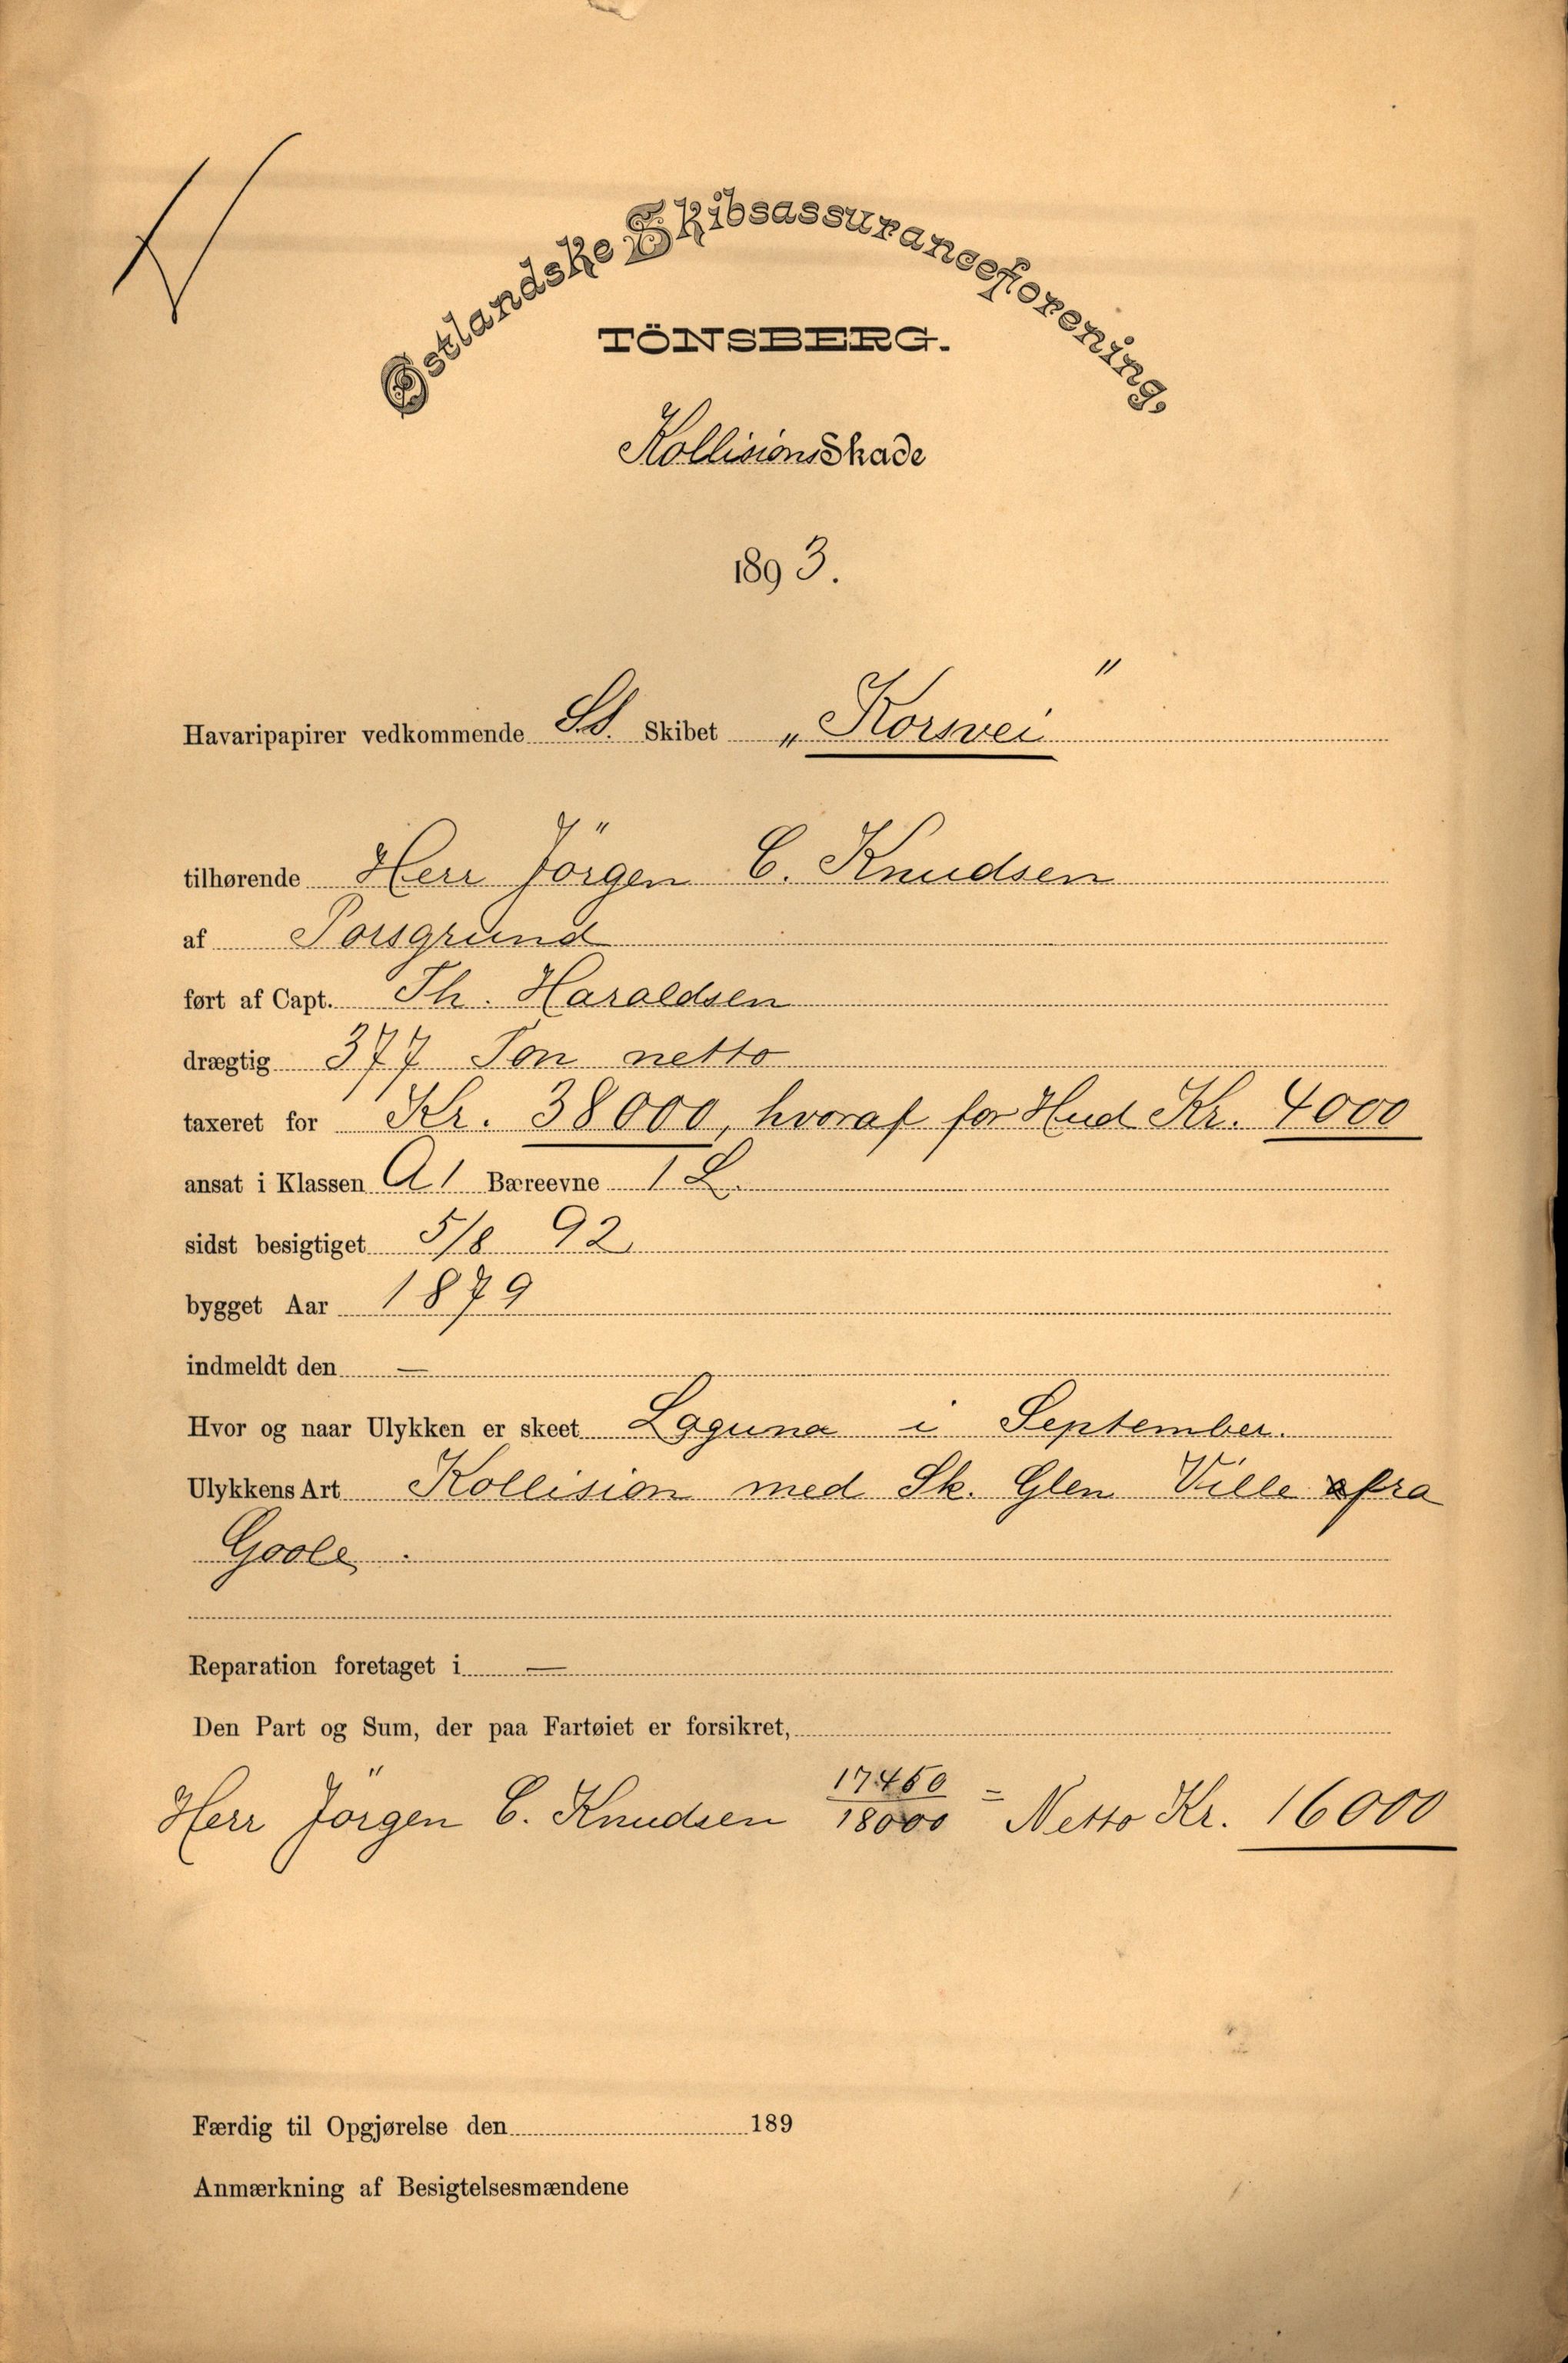 Østlandske Skibsassuranceforening,
TÖNSBERG.
KollisionsSkade
1893.
Havaripapirer vedkommende Sk. Skibet „Korsvei"
tilhørende Herr Jörgen C. Knudsen
af Porsgrund
ført af Capt. Th. Haraldsen
drægtig 377 Ton netto
taxeret for Kr. 38000, hvoraf for Hud Kr. 4000
ansat i Klassen A1 Bæreevne 1 L.
sidst besigtiget 5/8 92
bygget Aar 1879
indmeldt den —
Hvor og naar Ulykken er skeet Laguna i September.
Ulykkens Art Kollision med Sk. Glen Ville fra
Goole.
Reparation foretaget i —
Den Part og Sum, der paa Fartøiet er forsikret,
Herr Jörgen C. Knudsen 17450/18000 = Netto Kr. 16000
Færdig til Opgjørelse den 189
Anmærkning af Besigtelsesmændene